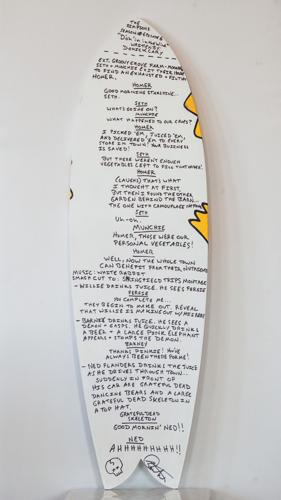 THE
SIMPSONS
SEASON # EPISODE
WRITTEN BY
DONICK CARY
EXT. GROOVY GROVE FARM - MORNING
SETH + MUNCHIE EXIT THEIR HOUSE
TO FIND AN EXHAUSTED + FILTHY
HOMER.
HOMER
GOOD MORNING STARSHINE...
SETH.
SETH
WHAT'S GOING ON?
MUNCHIE
WHAT HAPPENED TO OUR CROPS?
HOMER
I PICKED 'EM, JUICED 'EM,
AND DELIVERED 'EM TO EVERY
STORE IN TOWN! YOUR BUSINESS
IS SAVED!
SETH
BUT THERE WEREN'T ENOUGH
VEGETABLES LEFT TO FILL THAT ORDER!
HOMER
(LAUGHS) THAT'S WHAT
I THOUGHT AT FIRST,
BUT THEN I FOUND THE OTHER
GARDEN BEHIND THE BARN...
THE ONE WITH CAMOUFLAGE NETTING
SETH
Uh-oh.
MUNCHIE
HOMER, THOSE WERE OUR
PERSONAL VEGETABLES!
HOMER
WELL, NOW THE WHOLE TOWN
CAN BENEFIT FROM THEIR NUTRITION
MUSIC: WHITE RABBIT
SMASH CUT TO: SPRINGFIELD TRIPS MONTAGE
- WILLIE DRINKS JUICE. HE SEES FERGIE
FERGIE
YOU COMPLETE ME...
THEY BEGIN TO MAKE OUT. REVEAL
THAT WILLIE IS MAKING OUT W/ HIS RAKE
- BARNEY DRINKS JUICE. HE SEES A
DEMON + GASPS. HE QUICKLY DRINKS
A BEER + A LARGE PINK ELEPHANT
APPEARS + STOMPS THE DEMON.
BARNEY
THANKS, PINKIE! YOU'VE
ALWAYS BEEN THERE FOR ME!
- NED FLANDERS DRINKS THE JUICE
AS HE DRIVES THROUGH TOWN...
SUDDENLY IN FRONT OF
HIS CAR ARE GRATEFUL DEAD
DANCING BEARS AND A LARGE
GRATEFUL DEAD SKELETON IN
A TOP HAT.
GRATEFUL DEAD
SKELETON
GOOD MORNIN' NED!!
NED
AHHHHHHHHH!!